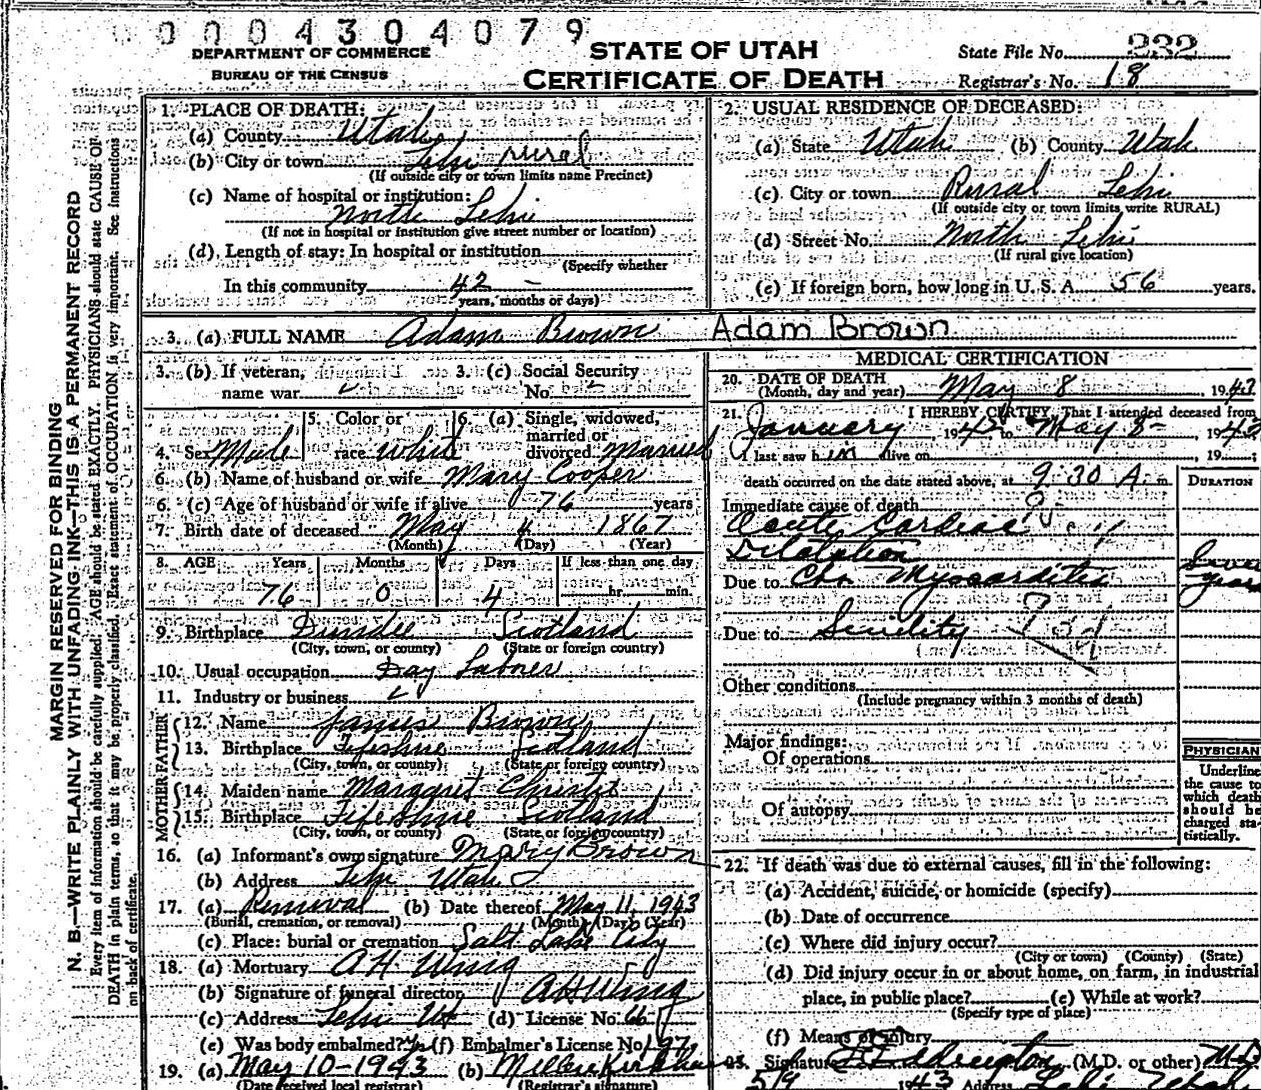 0004304079
DEPARTMENT OF COMMERCE
BUREAU OF THE CENSUS
STATE OF UTAH
CERTIFICATE OF DEATH
State File No. 232
Registrar's No. 18
MARGIN RESERVED FOR BINDING
N. B.—WRITE PLAINLY WITH UNFADING INK—THIS IS A PERMANENT RECORD
Every item of information should be carefully supplied. AGE should be stated EXACTLY. PHYSICIANS should state CAUSE OF
DEATH in plain terms, so that it may be properly classified. Exact statement of OCCUPATION is very important. See instructions
on back of certificate.
1. PLACE OF DEATH:
(a) County Utah
(b) City or town Lehi rural
(If outside city or town limits name Precinct)
(c) Name of hospital or institution:
North Lehi
(If not in hospital or institution give street number or location)
(d) Length of stay: In hospital or institution
(Specify whether
In this community 42 -
years, months or days)
2. USUAL RESIDENCE OF DECEASED:
(a) State Utah (b) County Utah
(c) City or town Rural Lehi
(If outside city or town limits write RURAL)
(d) Street No. North Lehi
(If rural give location)
(e) If foreign born, how long in U. S. A. 56 years.
3. (a) FULL NAME Adam Brown Adam Brown
3. (b) If veteran, name war
3. (c) Social Security No.
4. Sex Male
5. Color or race white
6. (a) Single, widowed, married or divorced Married
6. (b) Name of husband or wife Mary Cooper
6. (c) Age of husband or wife if alive 76 years
7. Birth date of deceased May 4 1867
(Month) (Day) (Year)
8. AGE Years Months Days If less than one day
76 0 4 hr. min.
9. Birthplace Dundee Scotland
(City, town, or county) (State or foreign country)
10. Usual occupation Day Laborer
11. Industry or business
FATHER
12. Name James Brown
13. Birthplace Fifeshire Scotland
(City, town, or county) (State or foreign country)
MOTHER
14. Maiden name Margaret Christie
15. Birthplace Fifeshire Scotland
(City, town, or county) (State or foreign country)
16. (a) Informant's own signature Mary Brown
(b) Address Lehi Utah
17. (a) Removal (b) Date thereof May 11, 1943
(Burial, cremation, or removal) (Month) (Day) (Year)
(c) Place: burial or cremation Salt Lake City
18. (a) Mortuary A H. Wing
(b) Signature of funeral director A H Wing
(c) Address Lehi Ut (d) License No.
(e) Was body embalmed? Yes (f) Embalmer's License No. 197
19. (a) May 10-1943 (b)
(Date received local registrar) (Registrar's signature)
MEDICAL CERTIFICATION
20. DATE OF DEATH
(Month, day and year) May 8 1943
21. I HEREBY CERTIFY, That I attended deceased from
January, 194 to May 8-, 1943
I last saw him alive on , 19 ;
death occurred on the date stated above, at 9:30 A. m.
DURATION
Immediate cause of death
Acute Cardiac
Dilatation
Due to Chr. Myocarditis
years
Due to Senility
Other conditions
(Include pregnancy within 3 months of death)
Major findings:
Of operations
Of autopsy
PHYSICIAN
Underline
the cause to
which death
should be
charged sta-
tistically.
22. If death was due to external causes, fill in the following:
(a) Accident, suicide, or homicide (specify)
(b) Date of occurrence
(c) Where did injury occur?
(City or town) (County) (State)
(d) Did injury occur in or about home, on farm, in industrial
place, in public place? (e) While at work?
(Specify type of place)
(f) Means of injury
Signature (M.D. or other) M.D
5/9 1943 Address